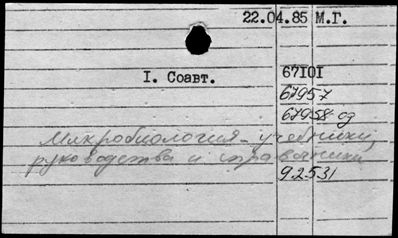 22.04.85 М.Г.
I. Соавт. 67IOI
67957
67958 од
Микробиология - учебники,
руководства и справочники
92531